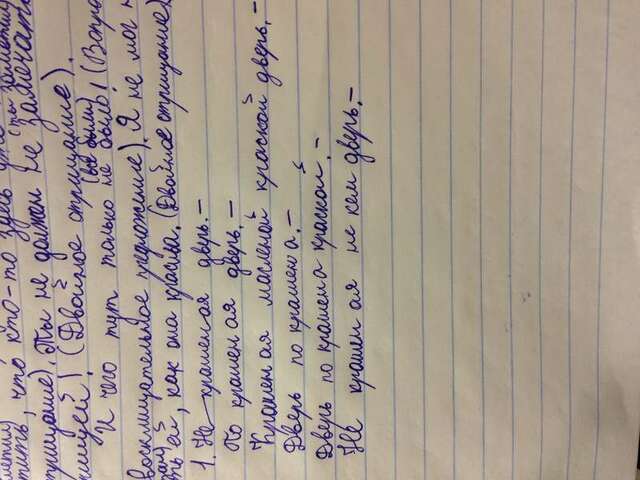 тить, что кто-то здесь уже
рицание). Ты не должен не замечать
ницей! (Двойное отрицание).
(все было)
И чего тут только не было! (Вопро
восклицательное предложение). Я не мог н
ть ей, как она красива. (Двойное отрицание)
1. Не крашен ая дверь. –
По крашен ая дверь. –
Крашен ая масленой краской дверь. –
Дверь по крашен а. –
Дверь по крашен а краской. –
Не крашен ая не кем дверь. –